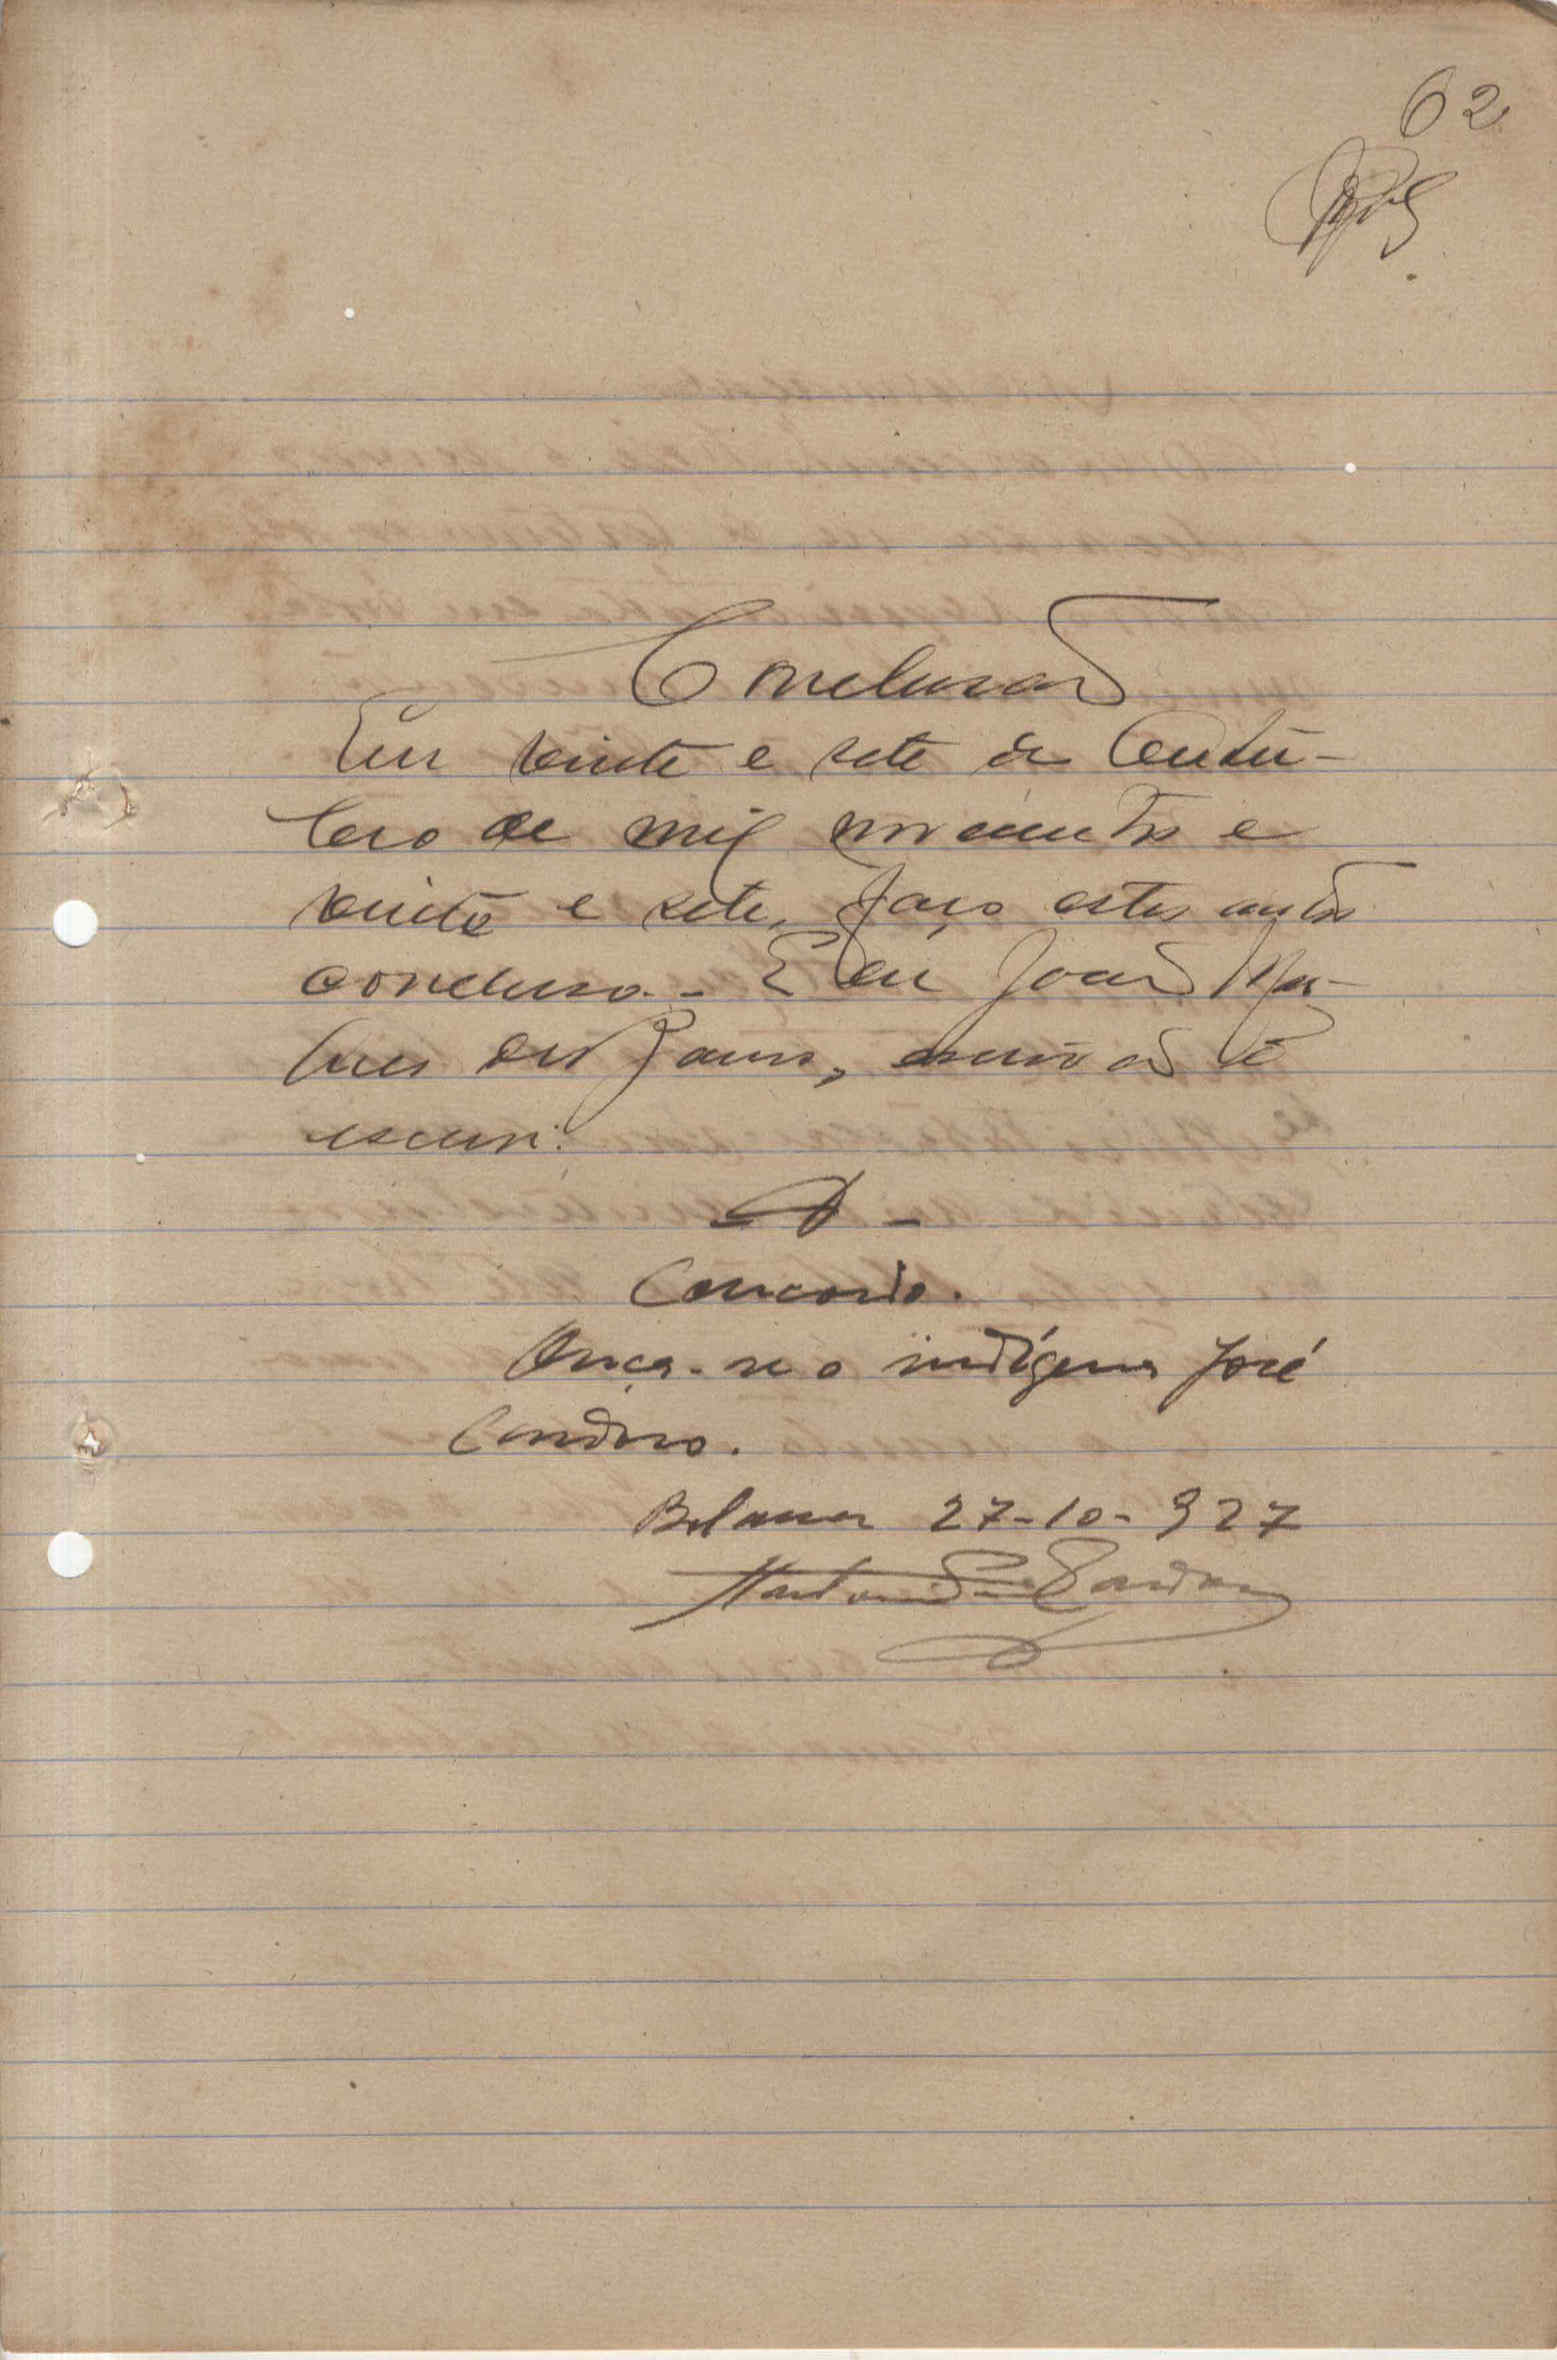 62
Conclusão
Em vinte e sete de Outu-
bro de mil novecentos e
vinte e sete, faço estes autos
concluso. - E eu João
dos Santos, escrivão o
escrevi.
Concordo.
Ouça-se o indígena José
Cardoso.
Bolama 27-10-927